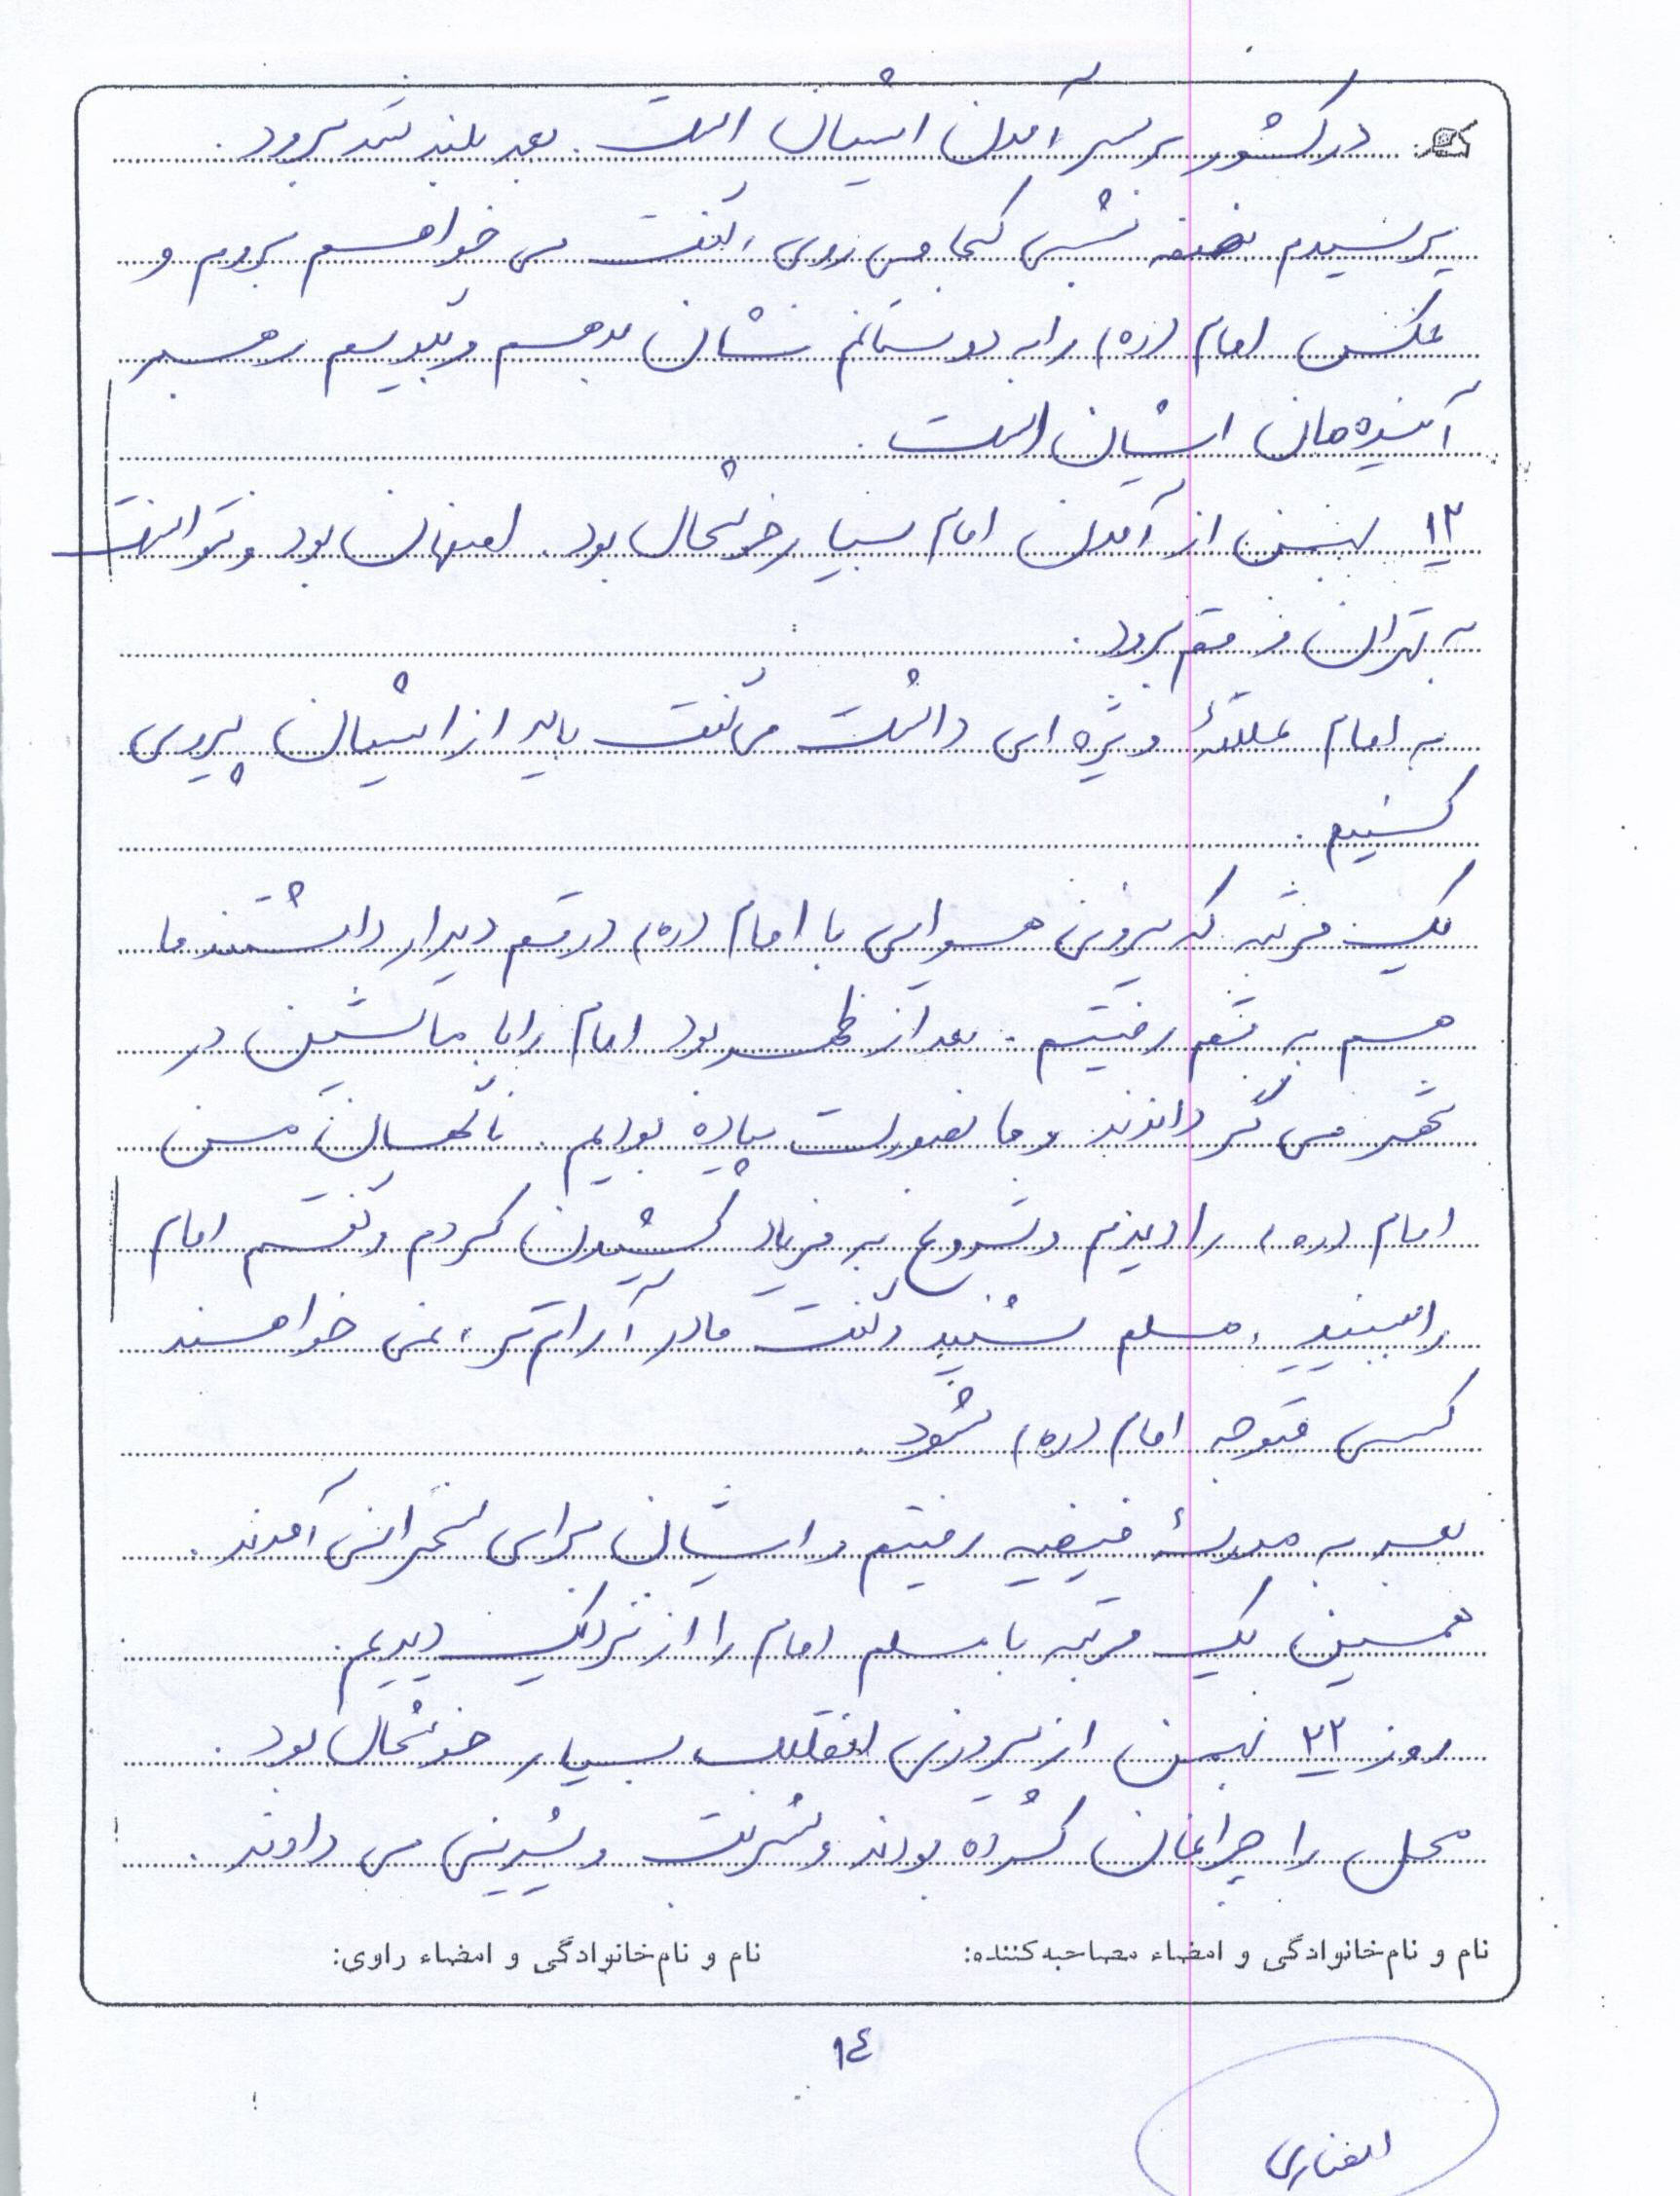 در کشور بر سر آمدن ایشان است. بعد بلند شد برود.
پرسیدم نصفه شبی کجا می روی، گفت می خواهم بروم و
عکس امام (ره) را به دوستانم نشان بدهم و بگویم رهبر
آینده مان ایشان است.
۱۲ بهمن از آمدن امام بسیار خوشحال بود. اصفهان بود و نتوانست
به تهران و قم برود.
به امام علاقهٔ ویژه ای داشت می گفت باید از ایشان پیروی
کنیم.
یک مرتبه که نیروی هوایی با امام (ره) در قم دیدار داشتند ما
هم به قم رفتیم. بعد از ظهر بود امام را با ماشین در
شهر می گرداندند و ما بصورت پیاده بودیم. ناگهان من
امام (ره) را دیدم و شروع به فریاد کشیدن کردم و گفتم امام
را ببینید، مسلم شنید و گفت مادر آرام تر، نمی خواهند
کسی متوجه امام (ره) شود.
بعد به مدرسهٔ فیضیه رفتیم و ایشان برای سخنرانی آمدند.
همین یک مرتبه با مسلم امام را از نزدیک دیدیم.
روز ۲۲ بهمن از پیروزی انقلاب بسیار خوشحال بود.
محل را چراغان کرده بودند و شربت و شیرینی می دادند.
نام و نام‌خانوادگی و امضاء مصاحبه‌کننده: نام و نام‌خانوادگی و امضاء راوی:
۱٤